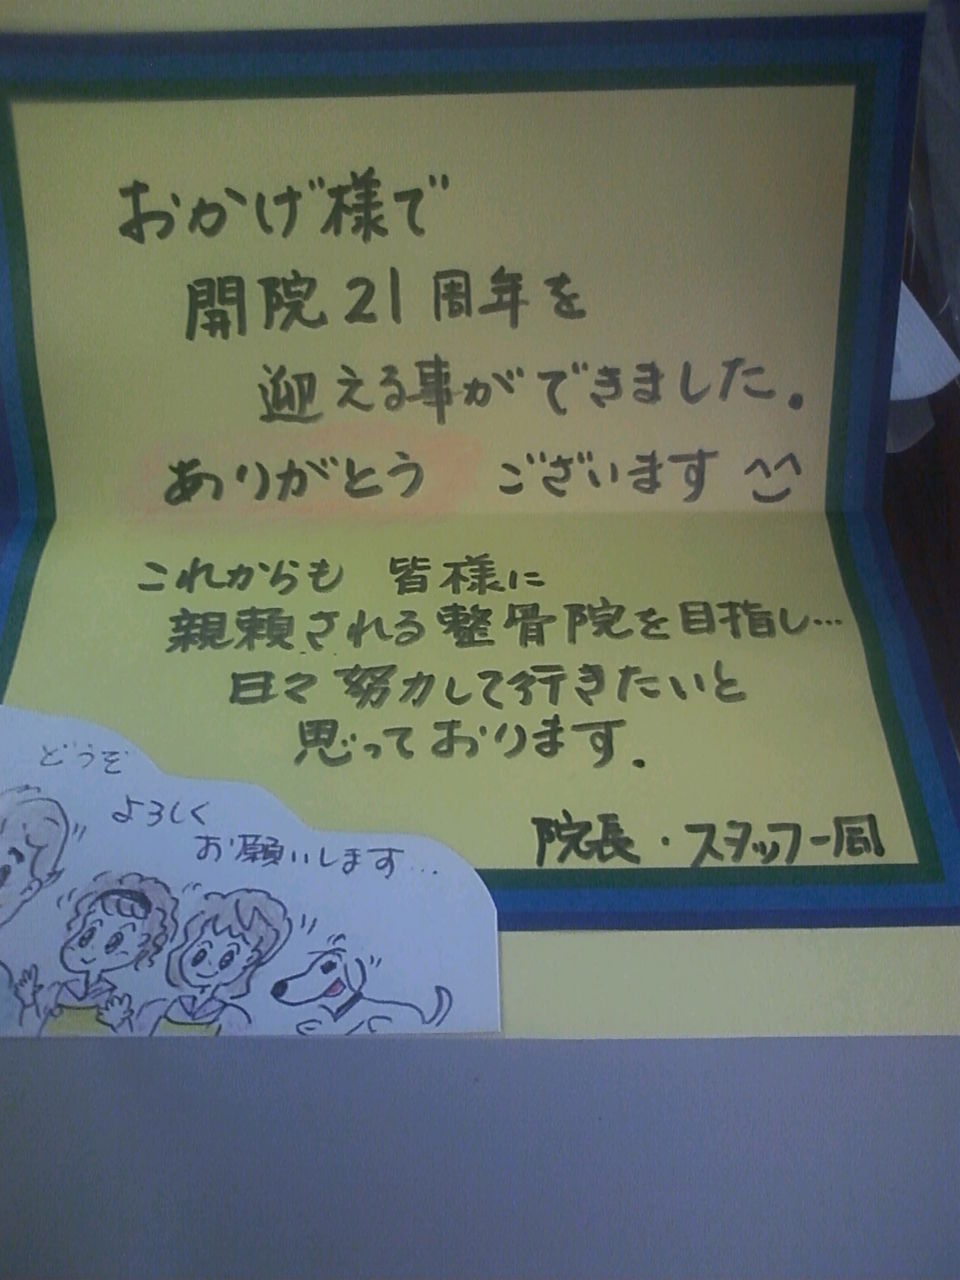 おかげ様で
開院21周年を
迎える事ができました。
ありがとう ございます ^^
これからも 皆様に
親頼される整骨院を目指し…
日々努力して行きたいと
思っております.
院長・スタッフ一同
どうぞ
よろしく
お願いします…